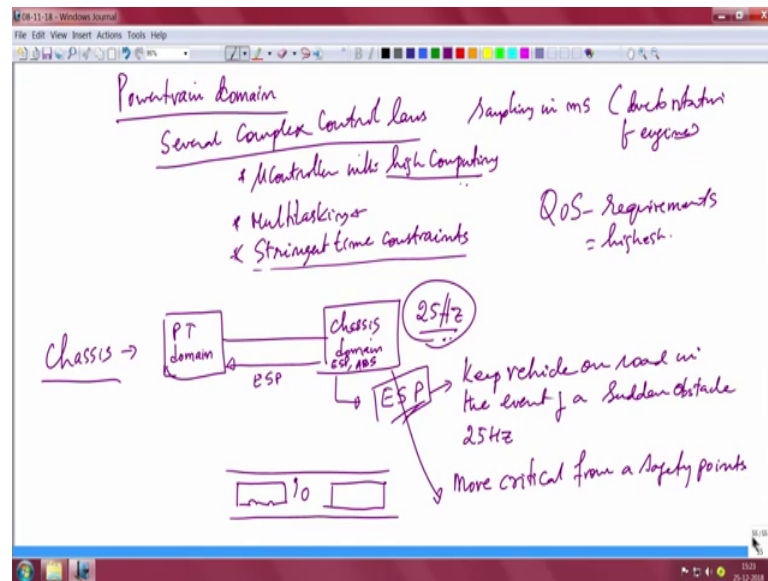 08-11-18 - Windows Journal
File Edit View Insert Actions Tools Help
Powertrain domain
Several Complex Control laws Sampling in ms (due to rotation
of engine)
* μController with high Computing
* Multitasking
* Stringent time constraints
QoS - requirements
= highest.
Chassis → PT domain
Chassis domain
ESP, ABS
25Hz
ESP
ESP → Keep vehicle on road in
the event of a sudden obstacle
25Hz
More critical from a safety points
15:23
25-12-2018